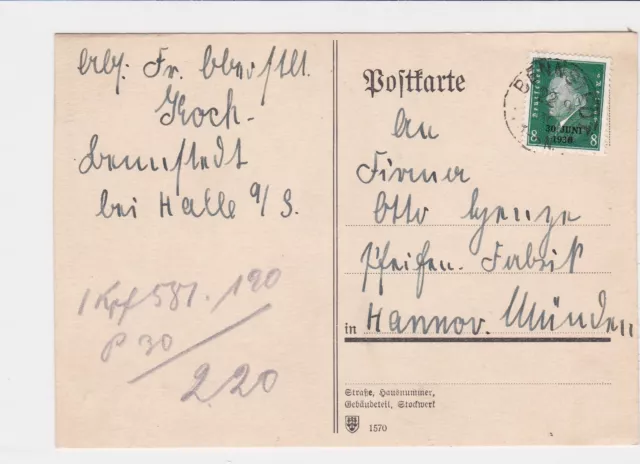 Abs. Fr. Oberstlt.
Koch-
Bennstedt
bei Halle a/S.
1 Kpf 581. 190
P 30
2.20
Postkarte
An
Firma
Otto Genze
Pfeifen-Fabrik
in Hannov. Münden
Straße, Hausnummer,
Gebäudeteil, Stockwerk
1570
8 30. JUNI 1930 8